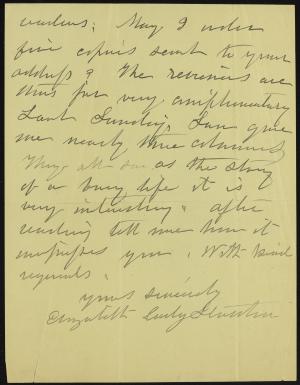 readers; May I order
five copies sent to your
address? The reviewers are
thus far very complimentary
Last Sunday's Sun gave
me nearly three columns
They all say as the story
of a busy life it is
very interesting. After
reading tell me how it
impresses you. With kind
regards.
yours sincerely
Elizabeth Cady Stanton